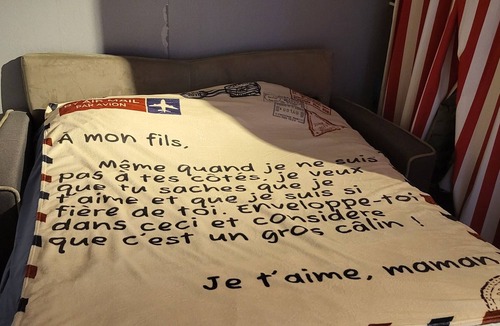 AIR MAIL
PAR AVION
À mon fils,
Même quand je ne suis
pas à tes côtés, je veux
que tu saches que je
t'aime et que je suis si
fière de toi. Enveloppe-toi
dans ceci et considère
que c'est un gros câlin !
Je t'aime, maman